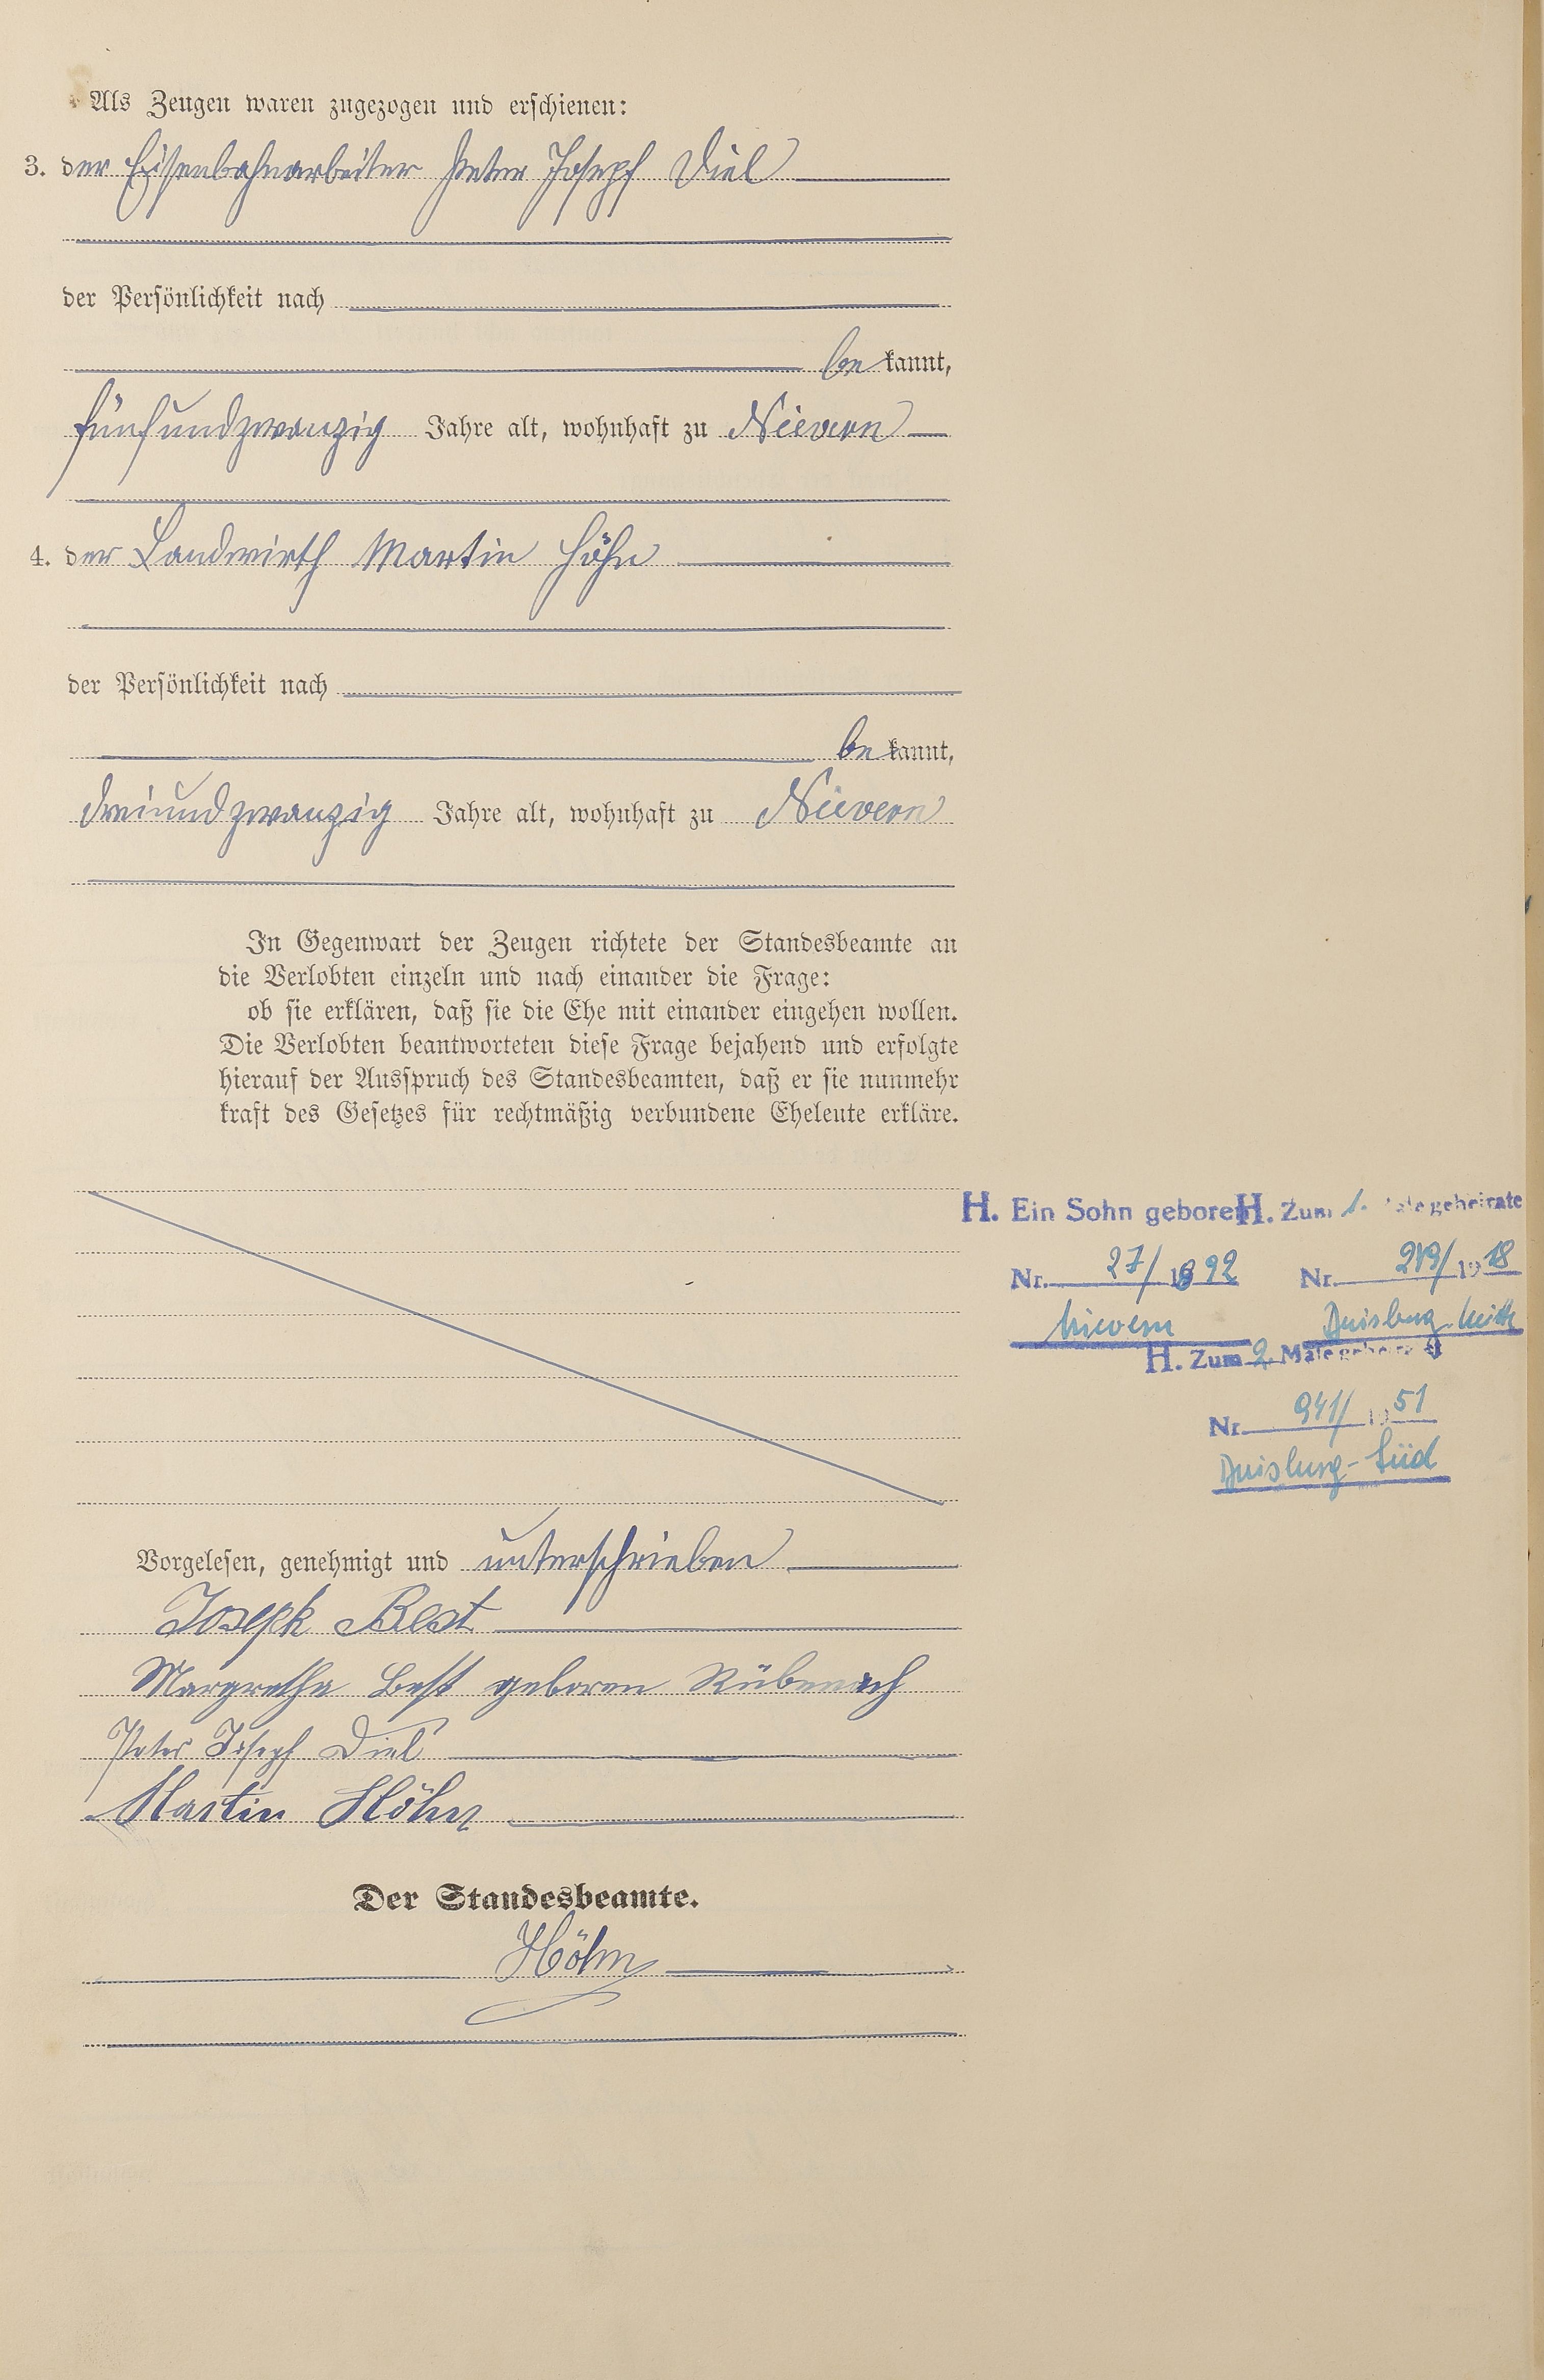 Als Zeugen waren zugezogen und erschienen:
3. der Eisenbahnarbeiter Peter Joseph Diel
der Persönlichkeit nach
be kannt,
fünfundzwanzig Jahre alt, wohnhaft zu Nievern
4. der Landwirth Martin Höhn
der Persönlichkeit nach
be kannt,
dreiundzwanzig Jahre alt, wohnhaft zu Nievern
In Gegenwart der Zeugen richtete der Standesbeamte an
die Verlobten einzeln und nach einander die Frage:
ob sie erklären, daß sie die Ehe mit einander eingehen wollen.
Die Verlobten beantworteten diese Frage bejahend und erfolgte
hierauf der Ausspruch des Standesbeamten, daß er sie nunmehr
kraft des Gesetzes für rechtmäßig verbundene Eheleute erkläre.
H. Ein Sohn geboren
Nr. 27/1892
Nievern
H. Zum 1. Male geheirate
Nr. /1918
Duisburg-Mitte
H. Zum 2. Male geheirat
Nr. 941/1951
Duisburg-Süd
Vorgelesen, genehmigt und unterschrieben
Joseph Best
Margretha Best geboren Rübenach
Peter Joseph Diel
Martin Höhn
Der Standesbeamte.
Höhn